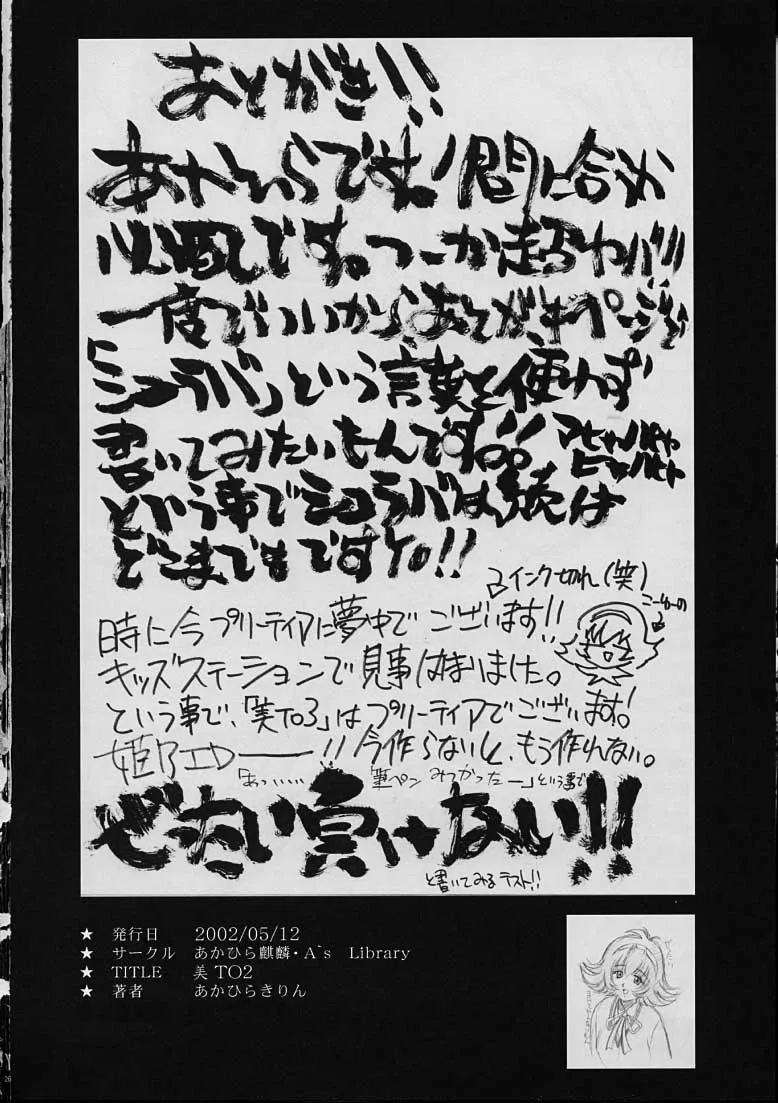 あとがき!!
あかひらです。!間に合うか
心配です。つーか超ヤバ!!!
一度でいいから、あとがきページで
「シュラバ」という言葉を使わず
書いてみたいもんです!!
という事でシュラバは続くは
どこまでもですYo!!
インク切れ(笑)
時に今プリーティアに夢中でございます!!
キッズステーションで見事はまりました。
という事で、「美To3」はプリーティアでございます!
姫ー!!今作らないと、もう作れない。
「あっ、、、、筆ペンみつかったー」という事で
ぜったい負けない!!
と書いてみるテスト!!
★ 発行日 2002/05/12
★ サークル あかひら麒麟・A`s Library
★ TITLE 美 TO2
★ 著者 あかひらきりん
26